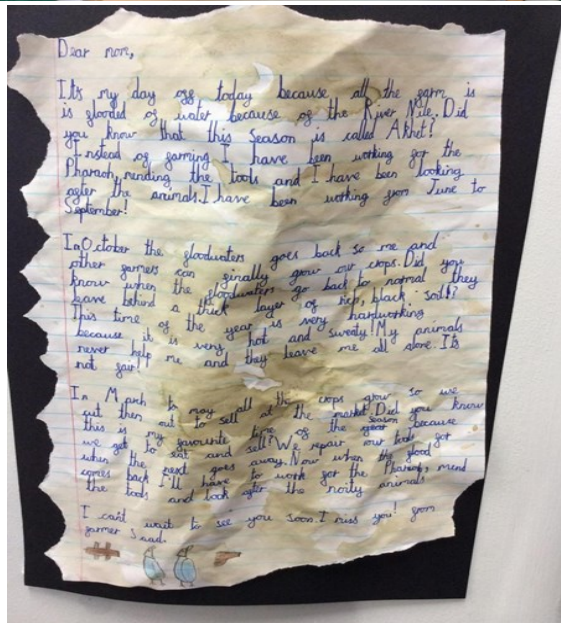 Dear mom,
It's my day off today because all the farm is
is flooded of water because of the River Nile. Did
you know that this season is called Akhet?
Instead of farming I have been working for the
Pharaoh, mending the tools and I have been looking
after the animals. I have been working from June to
September!
In October the floodwaters goes back so me and
other farmers can finally grow our crops. Did you
know when the floodwaters go back to normal they
leave behind a thick layer of rich, black soil?
This time of the year is very hardworking
because it is very hot and sweaty! My animals
never help me and they leave me all alone. It's
not fair!
In March to may all the crops grow so we
cut them out to sell at the market. Did you know
this is my favourite time of the season because
we get to eat and sell? We repair our tools for
when the next goes away. Now when the flood
comes back I'll have to work for the Pharaoh, mend
the tools and look after the noity animals
I can't wait to see you soon. I miss you! from
farmer Saad.